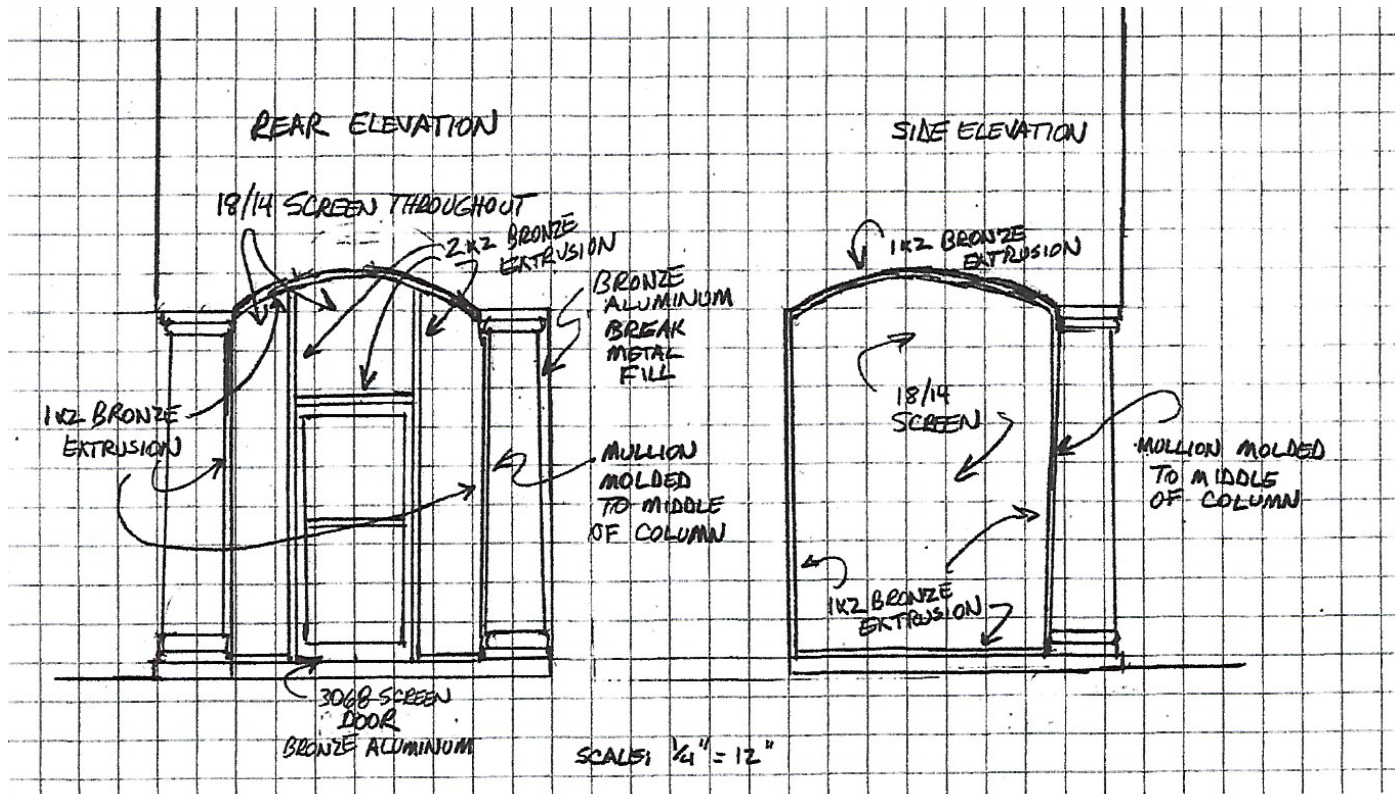 REAR ELEVATION
18/14 SCREEN THROUGHOUT
2x2 BRONZE
EXTRUSION
BRONZE
ALUMINUM
BREAK
METAL
FILL
1x2 BRONZE
EXTRUSION
MULLION
MOLDED
TO MIDDLE
OF COLUMN
3068 SCREEN
DOOR
BRONZE ALUMINUM
SIDE ELEVATION
1x2 BRONZE
EXTRUSION
18/14
SCREEN
MULLION MOLDED
TO MIDDLE
OF COLUMN
1x2 BRONZE
EXTRUSION
SCALE: 1/4" = 12"